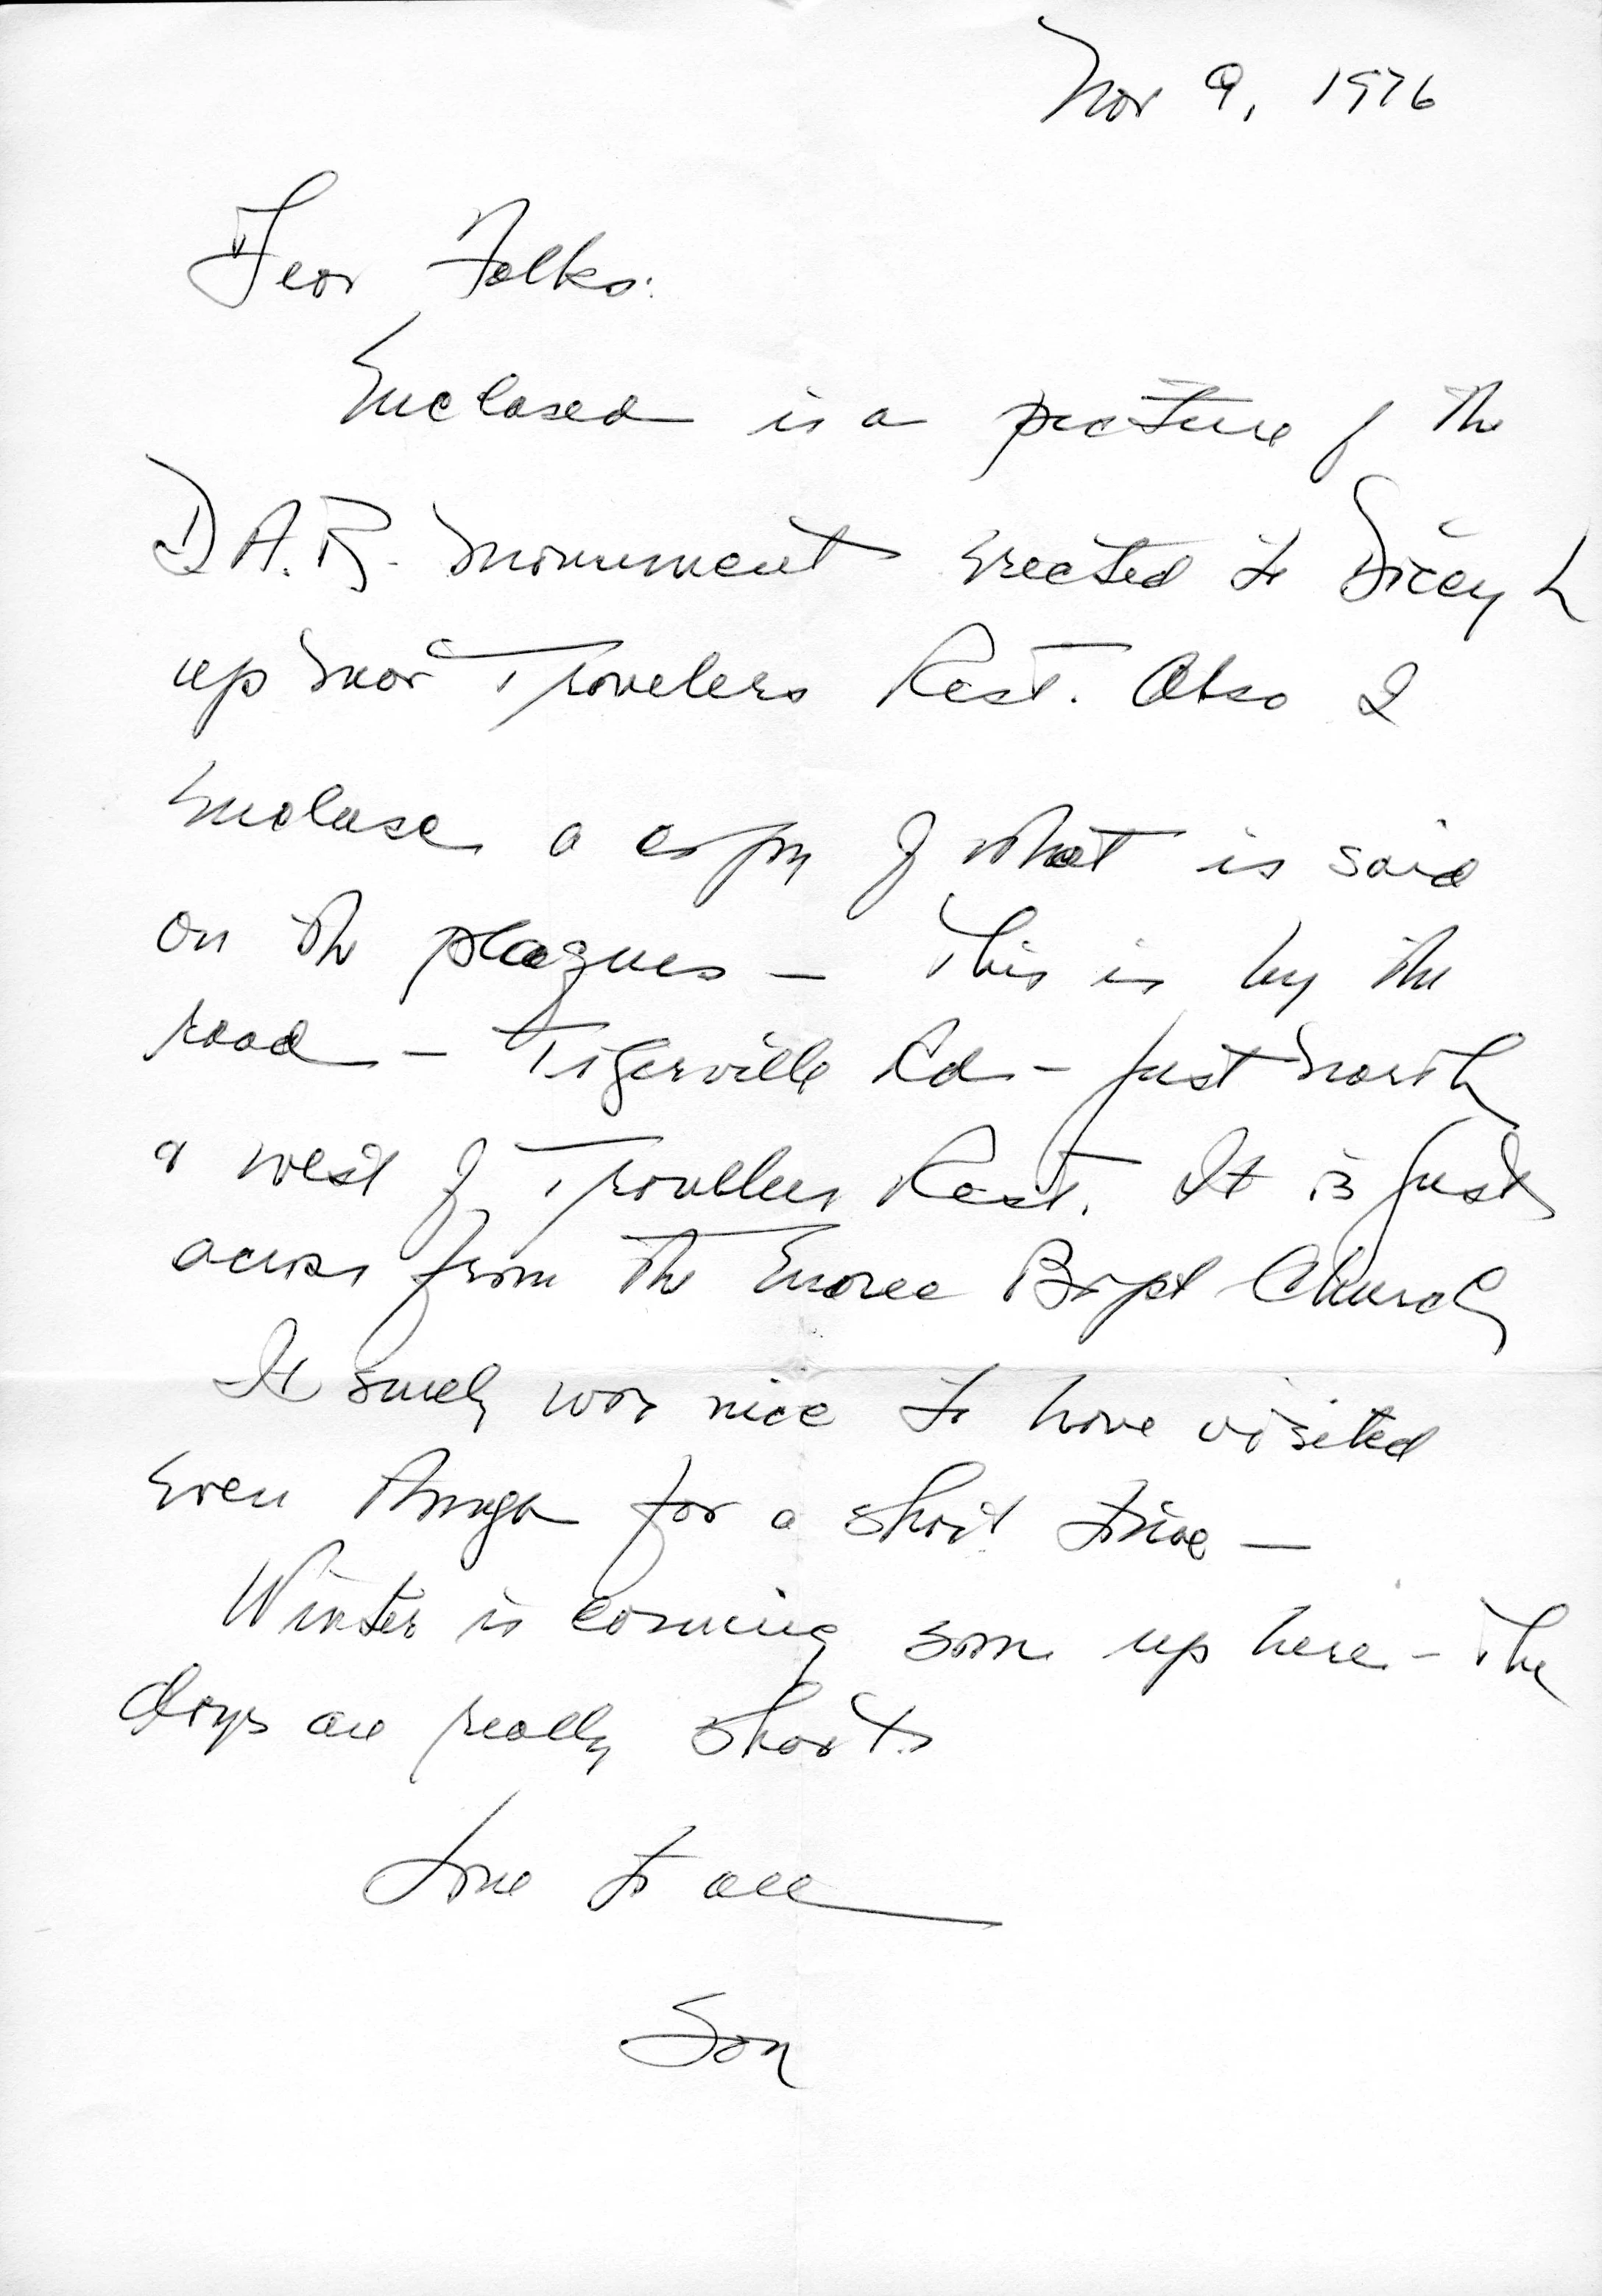 Nov 9, 1976
Dear Folks:
Enclosed is a picture of the
D A.R. monument erected to Dicey L
up near Travelers Rest. Also I
enclose a copy of what is said
on the plaques — This is by the
road — Tigerville Rd — just north
& west of Travelers Rest. It is just
across from the Enoree Bapt Church
It surely was nice to have visited
even though for a short time —
Winter is coming soon up here — The
days are really short
Love to all
Son